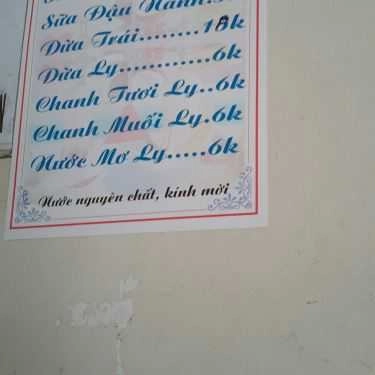 Sữa Đậu Nành
Dừa Trái........18k
Dừa Ly............6k
Chanh Tươi Ly..6k
Chanh Muối Ly.6k
Nước Mơ Ly.....6k
Nước nguyên chất, kính mời